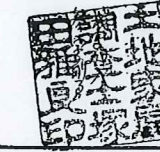 土地家屋
調査士塚
田雅印